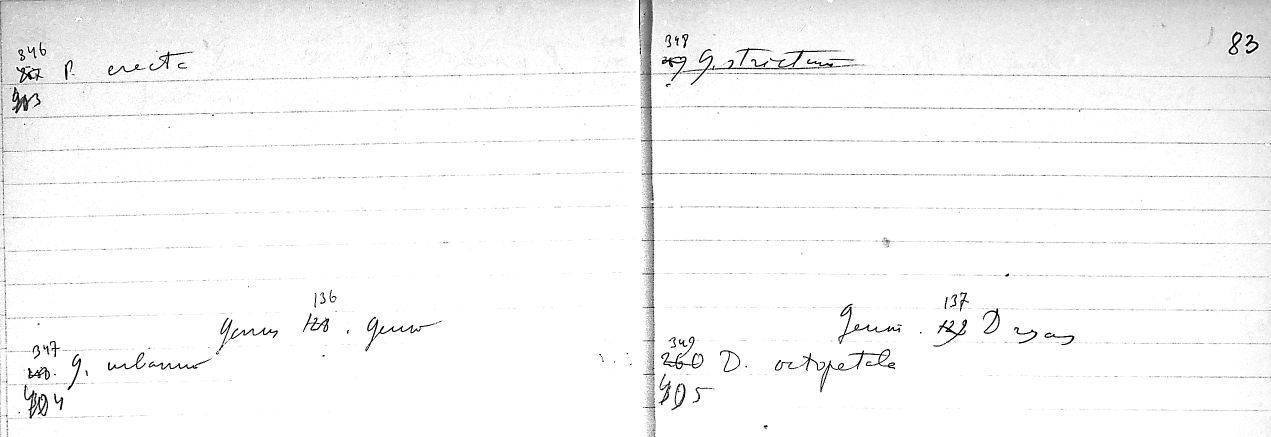 346
P. erecta
136
Genus 128. Geum
347
G. urbanum
404
83
348
259 G. strictum
137
Genus. 129 Dryas
349
260 D. octopetala
405